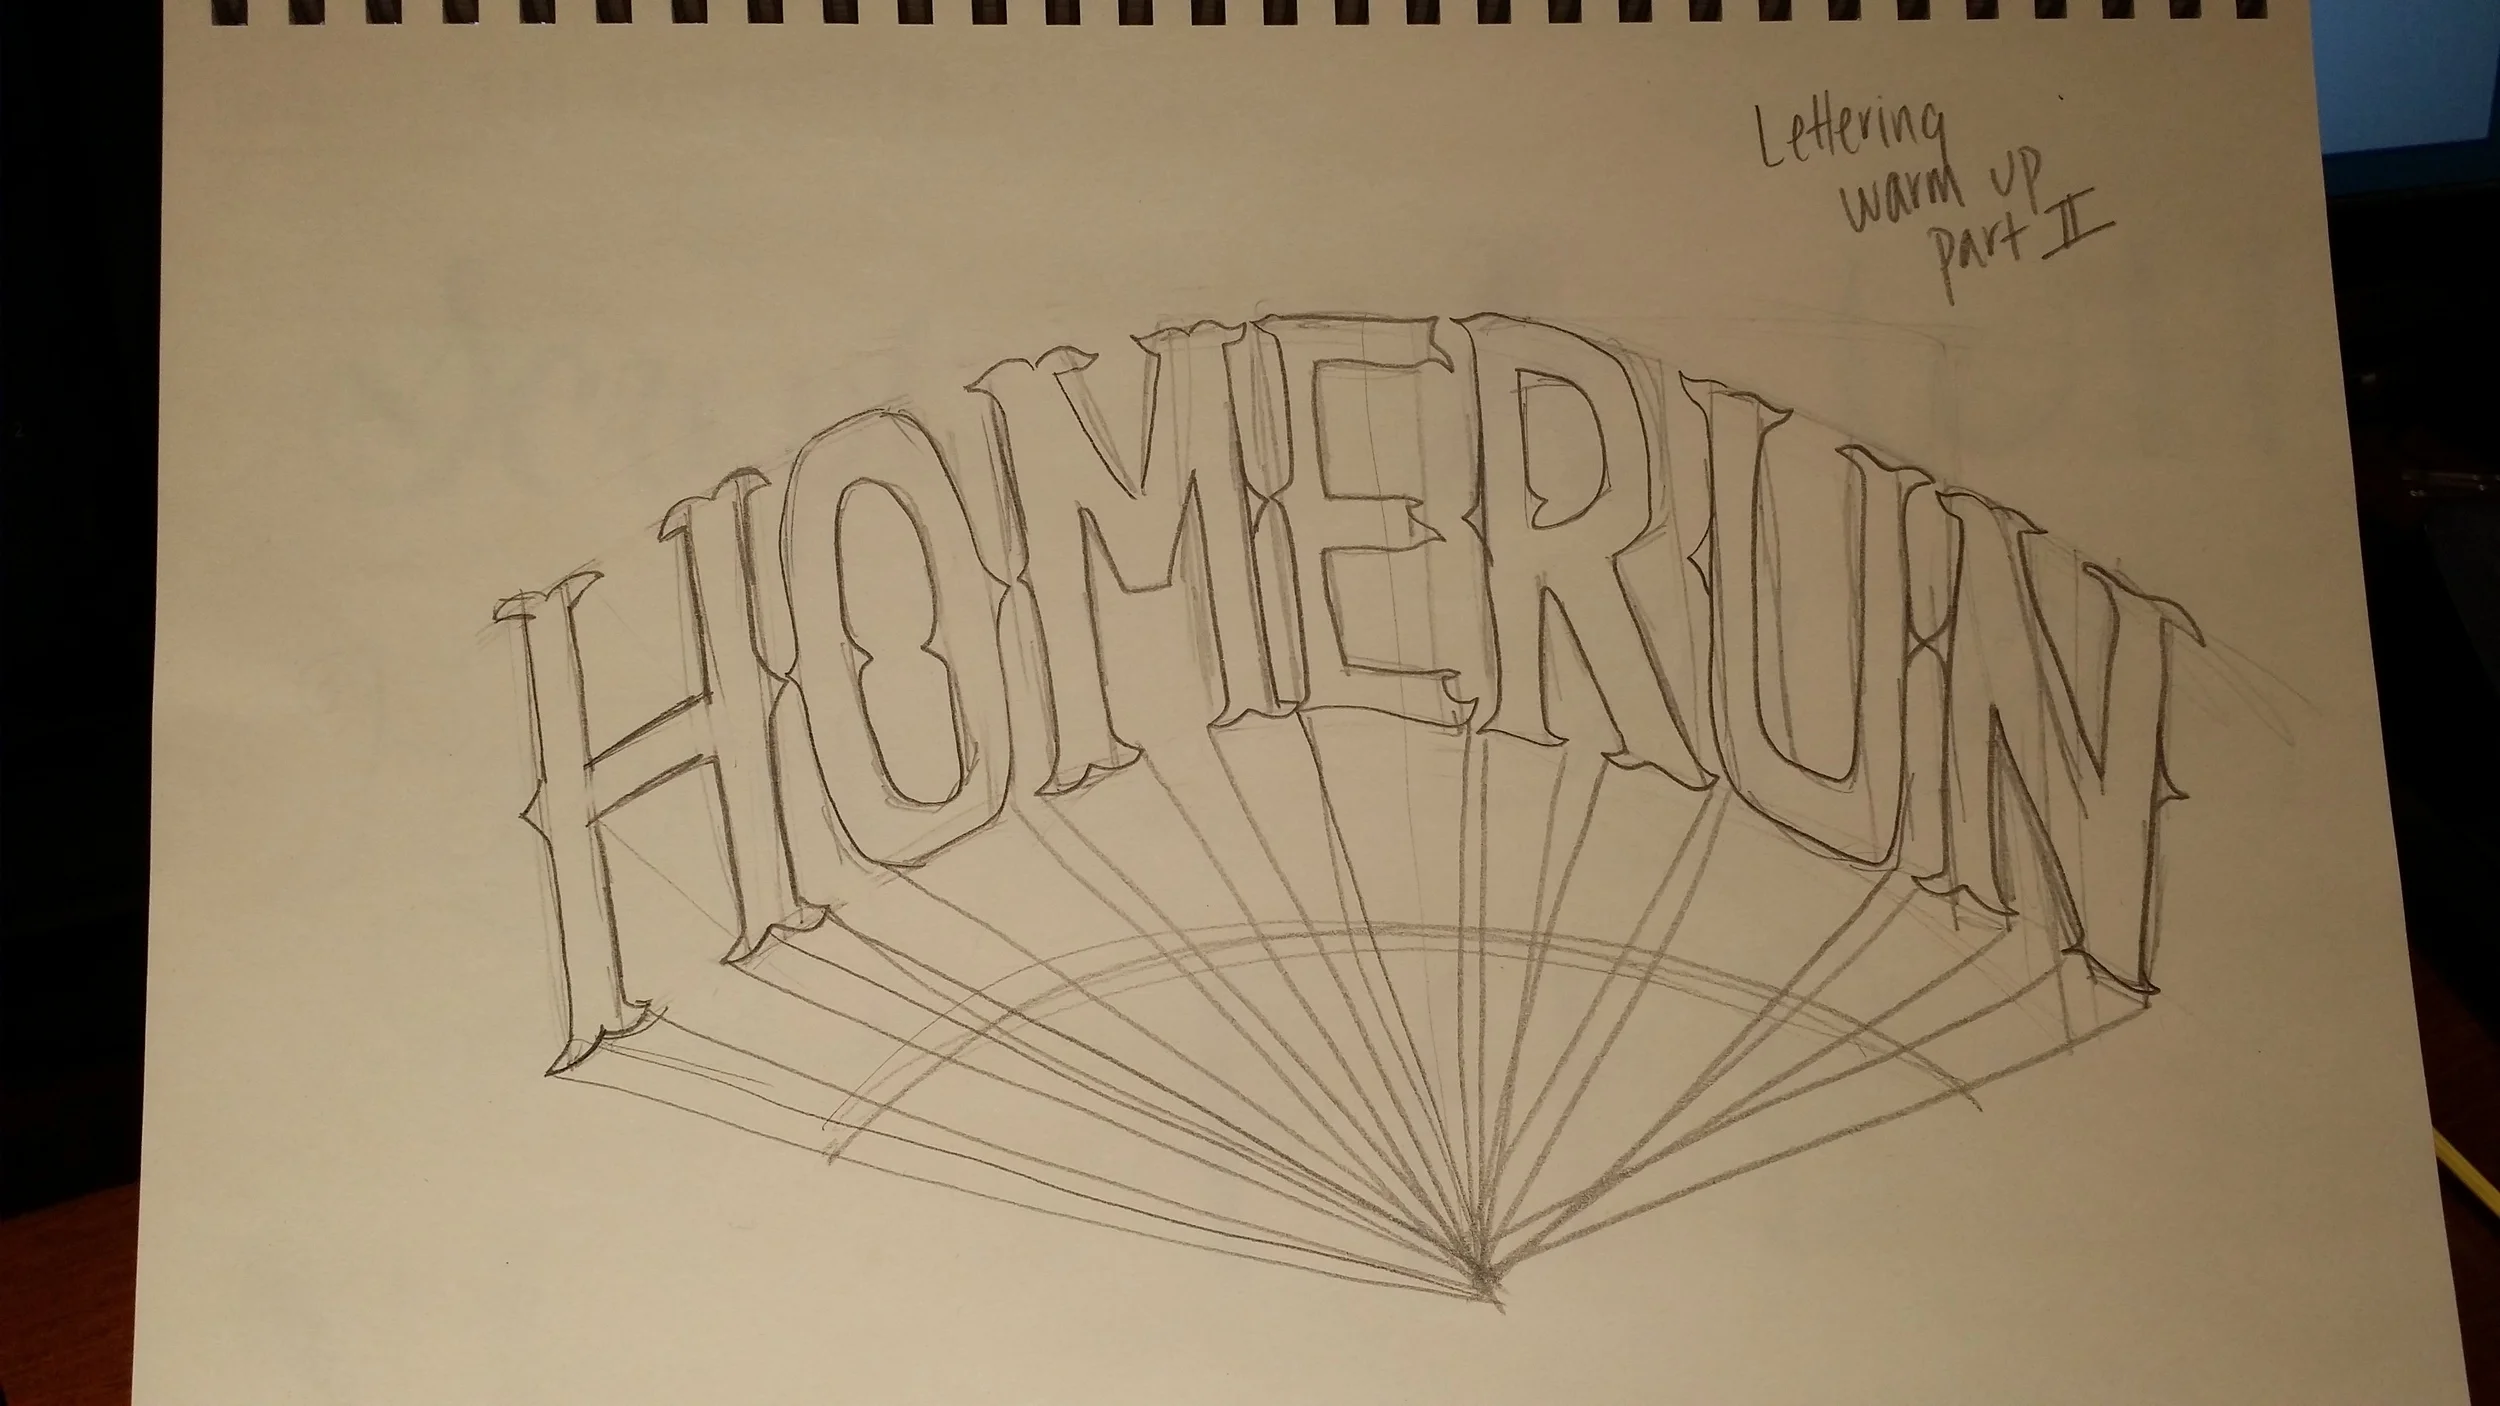 Lettering
warm up
part II
HOMERUN